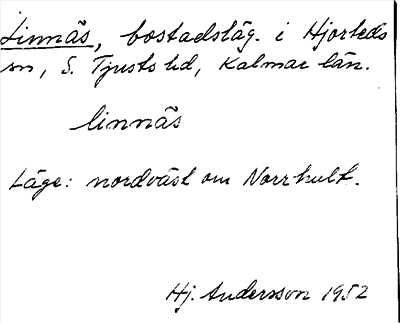 Linnäs, bostadsläg. i Hjorteds
sn, S. Tjusts hd, Kalmar län.
linnäs
Läge: nordväst om Norrhult.
Hj. Andersson 1952